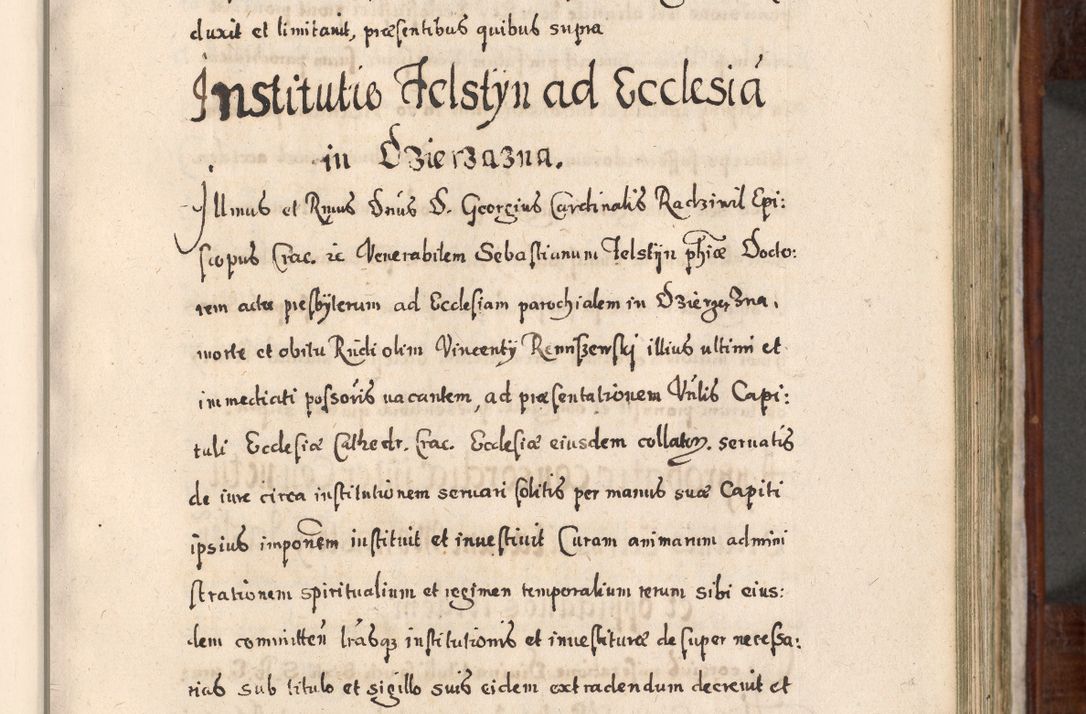 duxit et limitavit, præsentibus quibus supra
Institutio Felstÿn ad Ecclesiā
in Dzierzazna.
Illmus et Rmus Dnūs D. Georgius Cardinalis Radziwil Epi:
scopus Crac. ic Venerabilem Sebastianum Felstÿn phiæ Docto:
rem actu presbÿterum ad Ecclesiam parochialem in
morte et obitu Rndi olim Vincentÿ illius ultimi et
immediati possoris vacantem, ad præsentationem Vnlis Capi:
tuli Ecclesiæ Cathedr. Crac. Ecclesiæ eiusdem collatoꝝ. servatis
de iure circa institutionem servari solitis per manus suæ Capiti
ipsius imponēm instituit et investivit Curam animarum admini
strationem spiritualium et regimen temporalium rerum sibi eius:
dem committeñ lrasqꝫ institutionis et investituræ desuper necessa:
rias sub titulo et sigillo suis eidem extradendum decrevit et